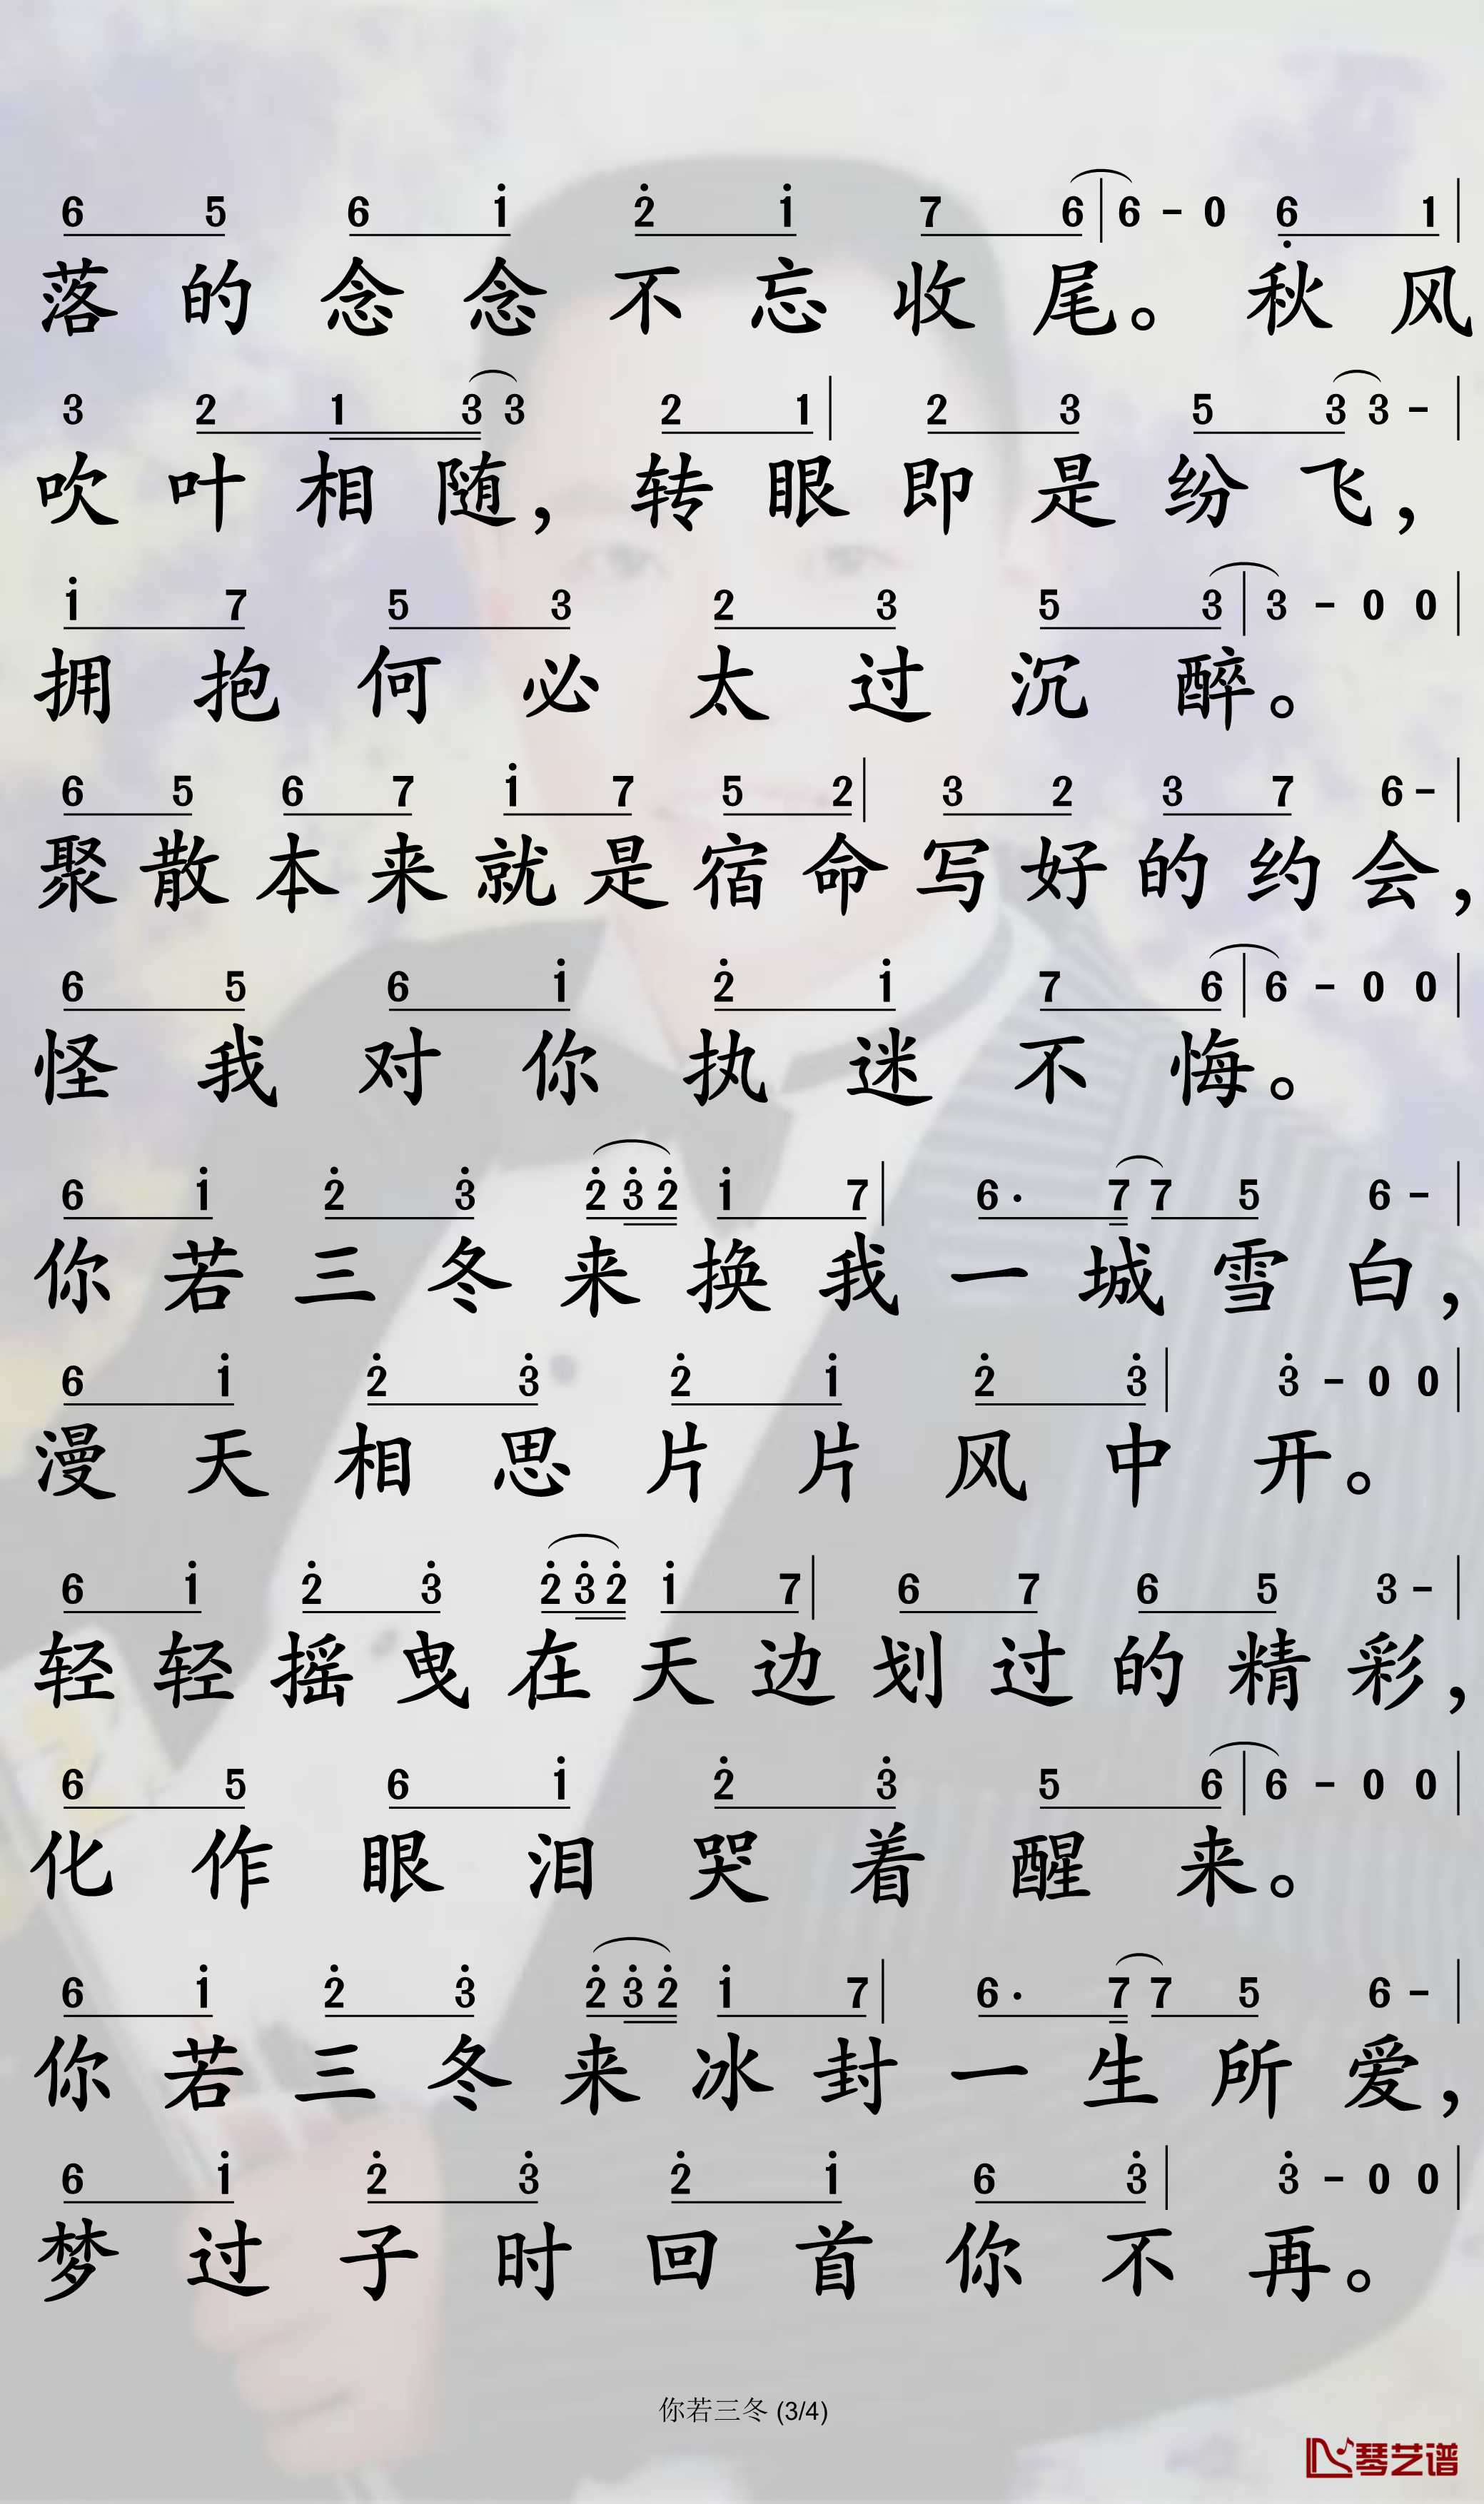 6 5 6 i 2̇ i 7 6 | 6 - 0 6̣ 1 |
落的念念不忘收尾。秋风
3 2 1 3 3 2 1 | 2 3 5 3 3 - |
吹叶相随，转眼即是纷飞，
i 7 5 3 2 3 5 3 | 3 - 0 0 |
拥抱何必太过沉醉。
6 5 6 7 i 7 5 2 | 3 2 3 7 6 - |
聚散本来就是宿命写好的约会，
6 5 6 i 2̇ i 7 6 | 6 - 0 0 |
怪我对你执迷不悔。
6 i 2̇ 3̇ 2̇ 3̇ 2̇ i 7 | 6 · 7 7 5 6 - |
你若三冬来换我一城雪白，
6 i 2̇ 3̇ 2̇ i 2̇ 3̇ | 3̇ - 0 0 |
漫天相思片片风中开。
6 i 2̇ 3̇ 2̇ 3̇ 2̇ i 7 | 6 7 6 5 3 - |
轻轻摇曳在天边划过的精彩，
6 5 6 i 2̇ 3̇ 5 6 | 6 - 0 0 |
化作眼泪哭着醒来。
6 i 2̇ 3̇ 2̇ 3̇ 2̇ i 7 | 6 · 7 7 5 6 - |
你若三冬来冰封一生所爱，
6 i 2̇ 3̇ 2̇ i 6 3̇ | 3̇ - 0 0 |
梦过子时回首你不再。
你若三冬 (3/4)
琴艺谱